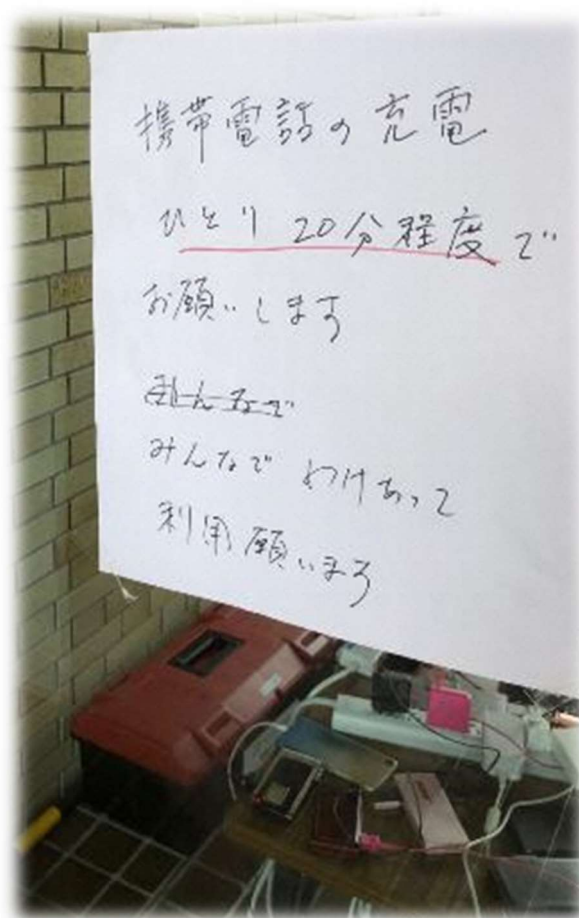 携帯電話の充電
ひとり 20分程度で
お願いします
みんなで わけあって
利用願います